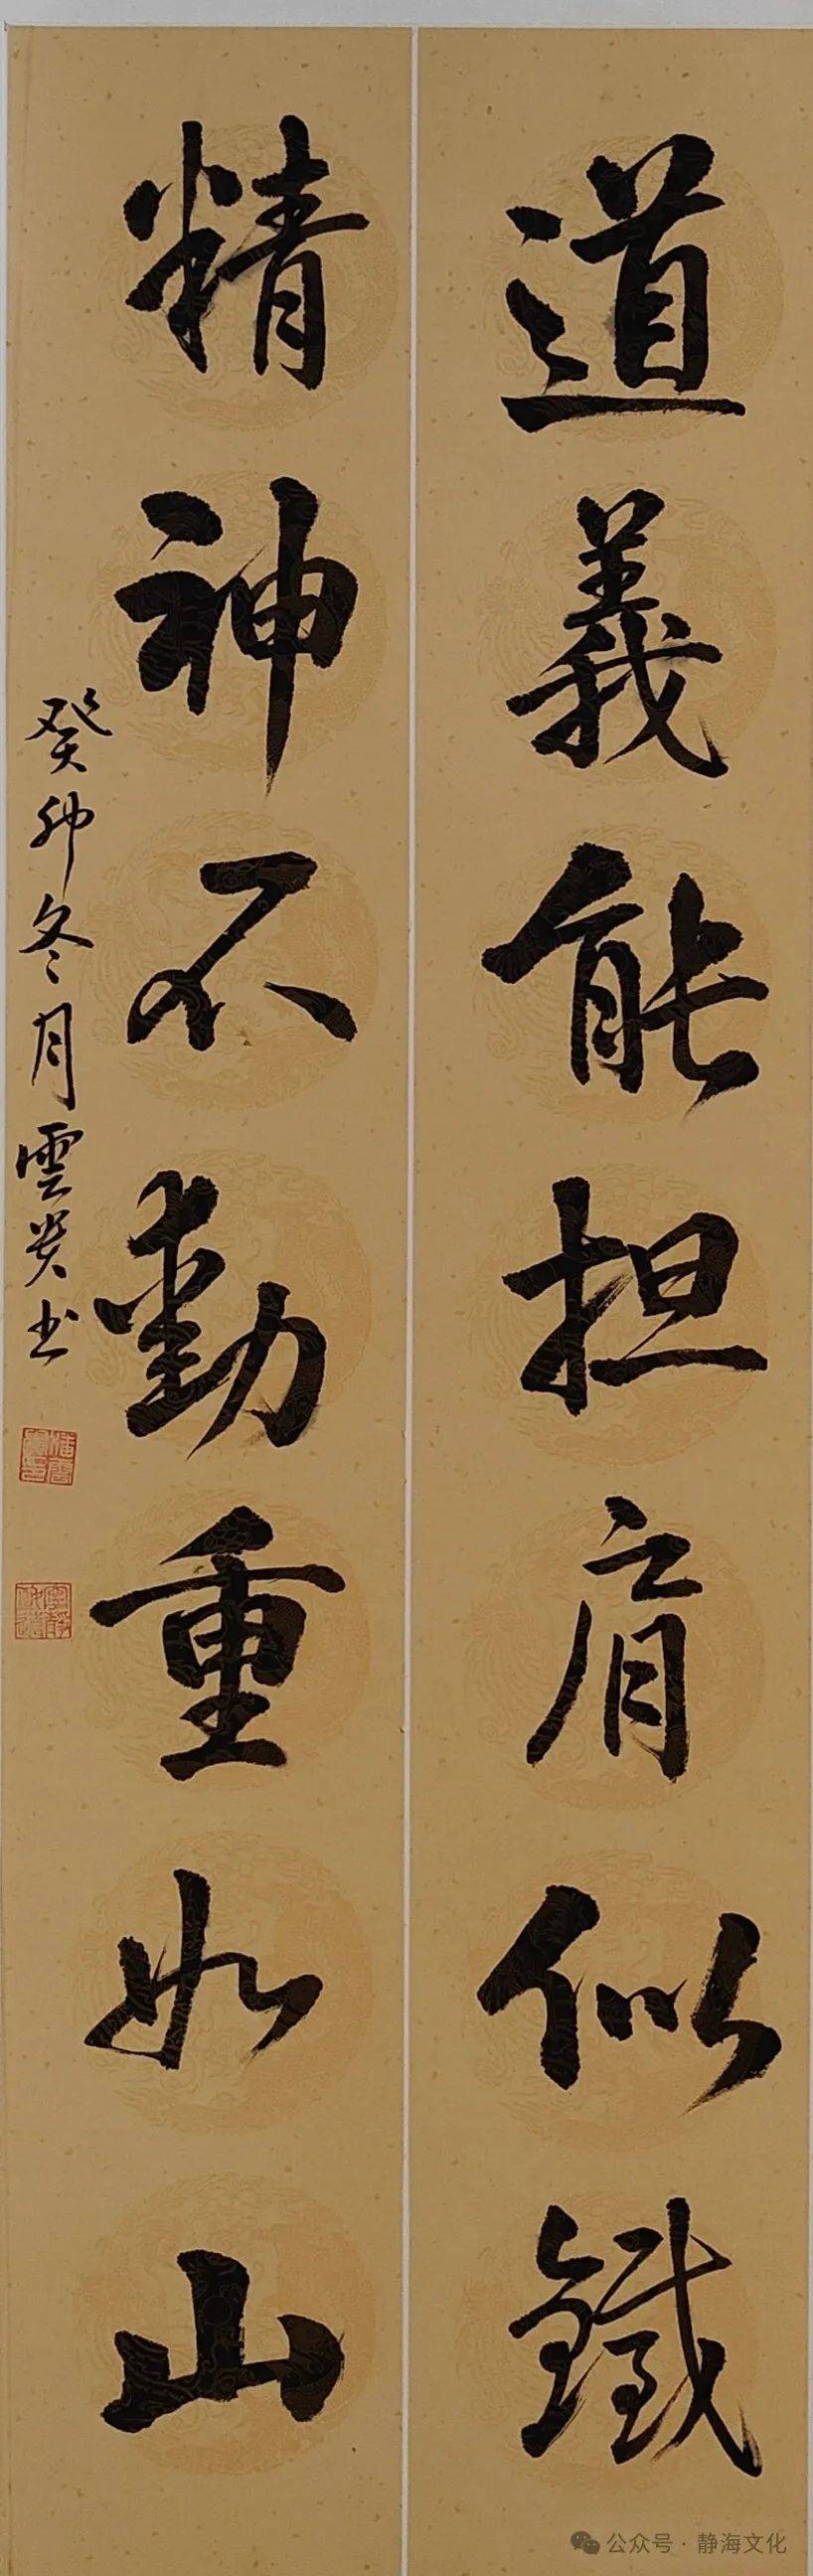 道義能担肩似鐵
精神不動重如山
癸卯冬月雲贵书
公众号·静海文化